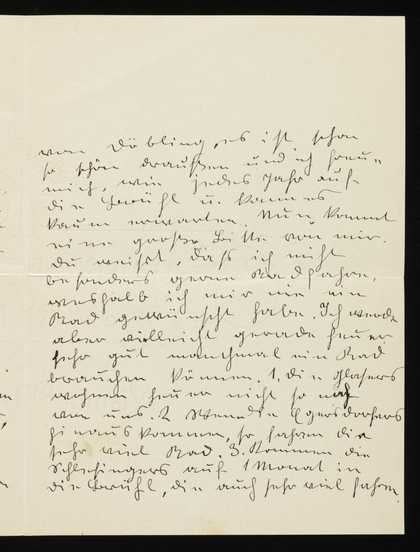 von Döbling, es ist schon
so schön draußen und ich freue
mich, wie jedes Jahr auf
die Brühl u. kann es
kaum erwarten. Nun kommt
eine große Bitte von mir.
Du weißt, daß ich nicht
besonders gerne Radfahre,
weshalb ich mir nie ein
Rad gewünscht habe. Ich werde
aber vielleicht gerade heuer
sehr gut manchmal ein Rad
brauchen können. 1. die Glasers
wohnen heuer nicht so nah
von uns. 2 Wenn die Egersdorfers
hinaus kommen, so fahren die
sehr viel Rad. 3. Kommen die
Schlesingers auf 1 Monat in
die Brühl, die auch sehr viel fahren